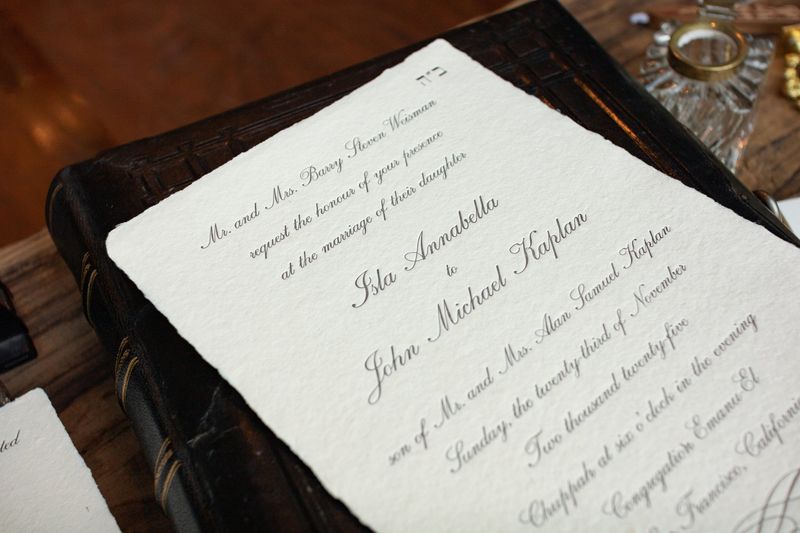 ב״ה
Mr. and Mrs. Barry Steven Weisman
request the honour of your presence
at the marriage of their daughter
Isla Annabella
to
John Michael Kaplan
son of Mr. and Mrs. Alan Samuel Kaplan
Sunday, the twenty-third of November
Two thousand twenty-five
Chuppah at six o'clock in the evening
Congregation Emanu-El
Francisco, California